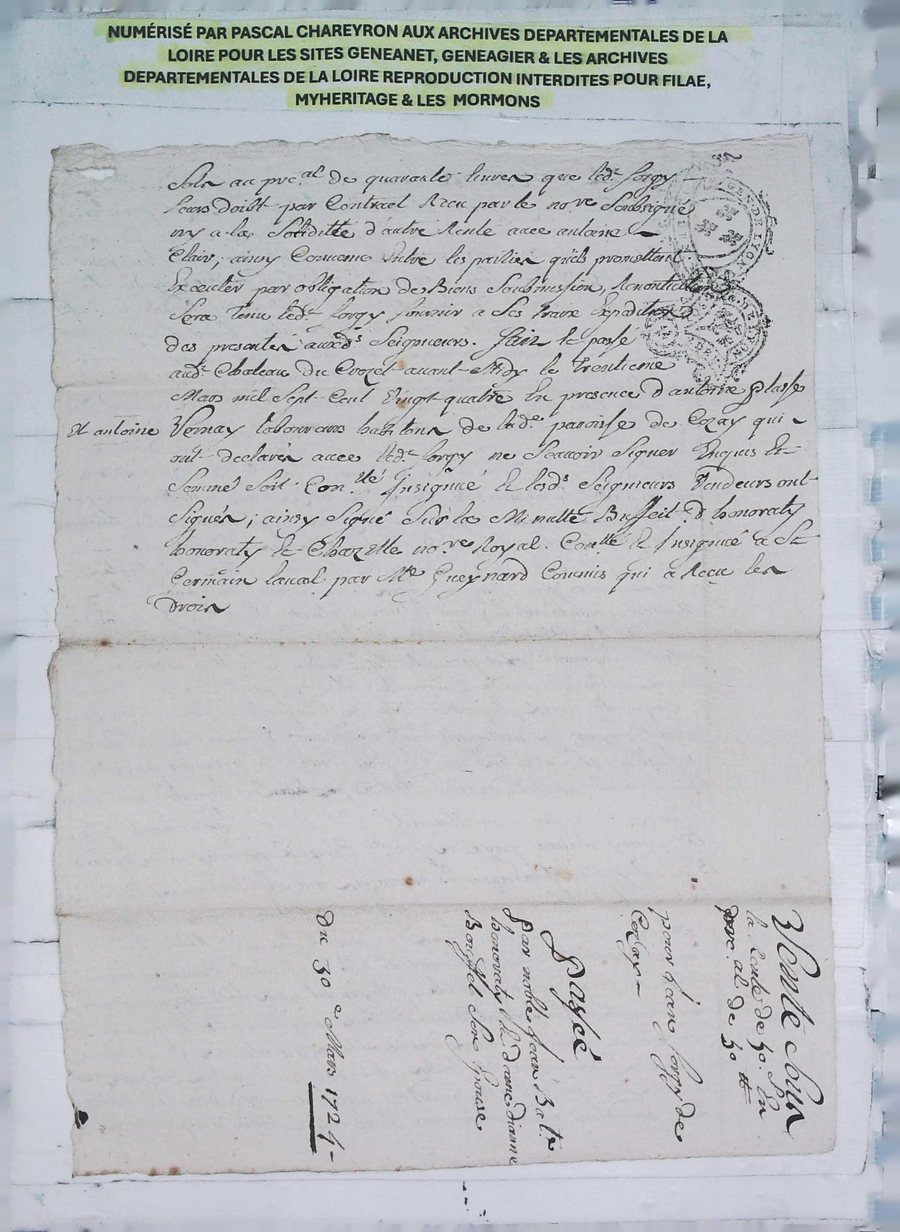 NUMÉRISÉ PAR PASCAL CHAREYRON AUX ARCHIVES DEPARTEMENTALES DE LA
LOIRE POUR LES SITES GENEANET, GENEAGIER & LES ARCHIVES
DEPARTEMENTALES DE LA LOIRE REPRODUCTION INTERDITES POUR FILAE,
MYHERITAGE & LES MORMONS
Sols au pre.al de quarante livres que led. Forgy
leurs doibt par Contract Receu par le no.re Soubsigné
ny a la Solidité d'autre Rente avec antoine
Clair, ainsy Convenu Entre les parties qu'ils promettent
Executer par obligation de Biens Soubmission, Renontiation
Sera tenu led.t Forgy fournir a Ses fraix Expedition
des presentes auxd.s Seigneurs. Fait et passé
aud.t Chateau du Crozet avant Midy le trentieme
Mars mil Sept Cent Vingt quatre En presence d'antoine Plasse
Et antoine Vernay laboureurs habitans de lad. paroisse de Cezay qui
ont declarés avec led.t Forgy ne Scavoir Signer Enquis Et
Sommé Soit Con.lé Insignué Et lesd.s Seigneurs Vendeurs ont
Signés, ainsy Signé Sur la Minutte, d'honoraty
honoraty Et Chazelle no.re Royal. Con.llé Et Insignué a St
Germain laval par M.re Gueynard Commis qui a Receu les
Droits
Vente Sous
la Rente de 30 s. En
prec.al de 30 tt
pour Jean Forgy de
Cezay
Passé
Par noble Jean Bat.te
honoraty Et dame dianne
Son Epouse
Du 30 e Mars 1724